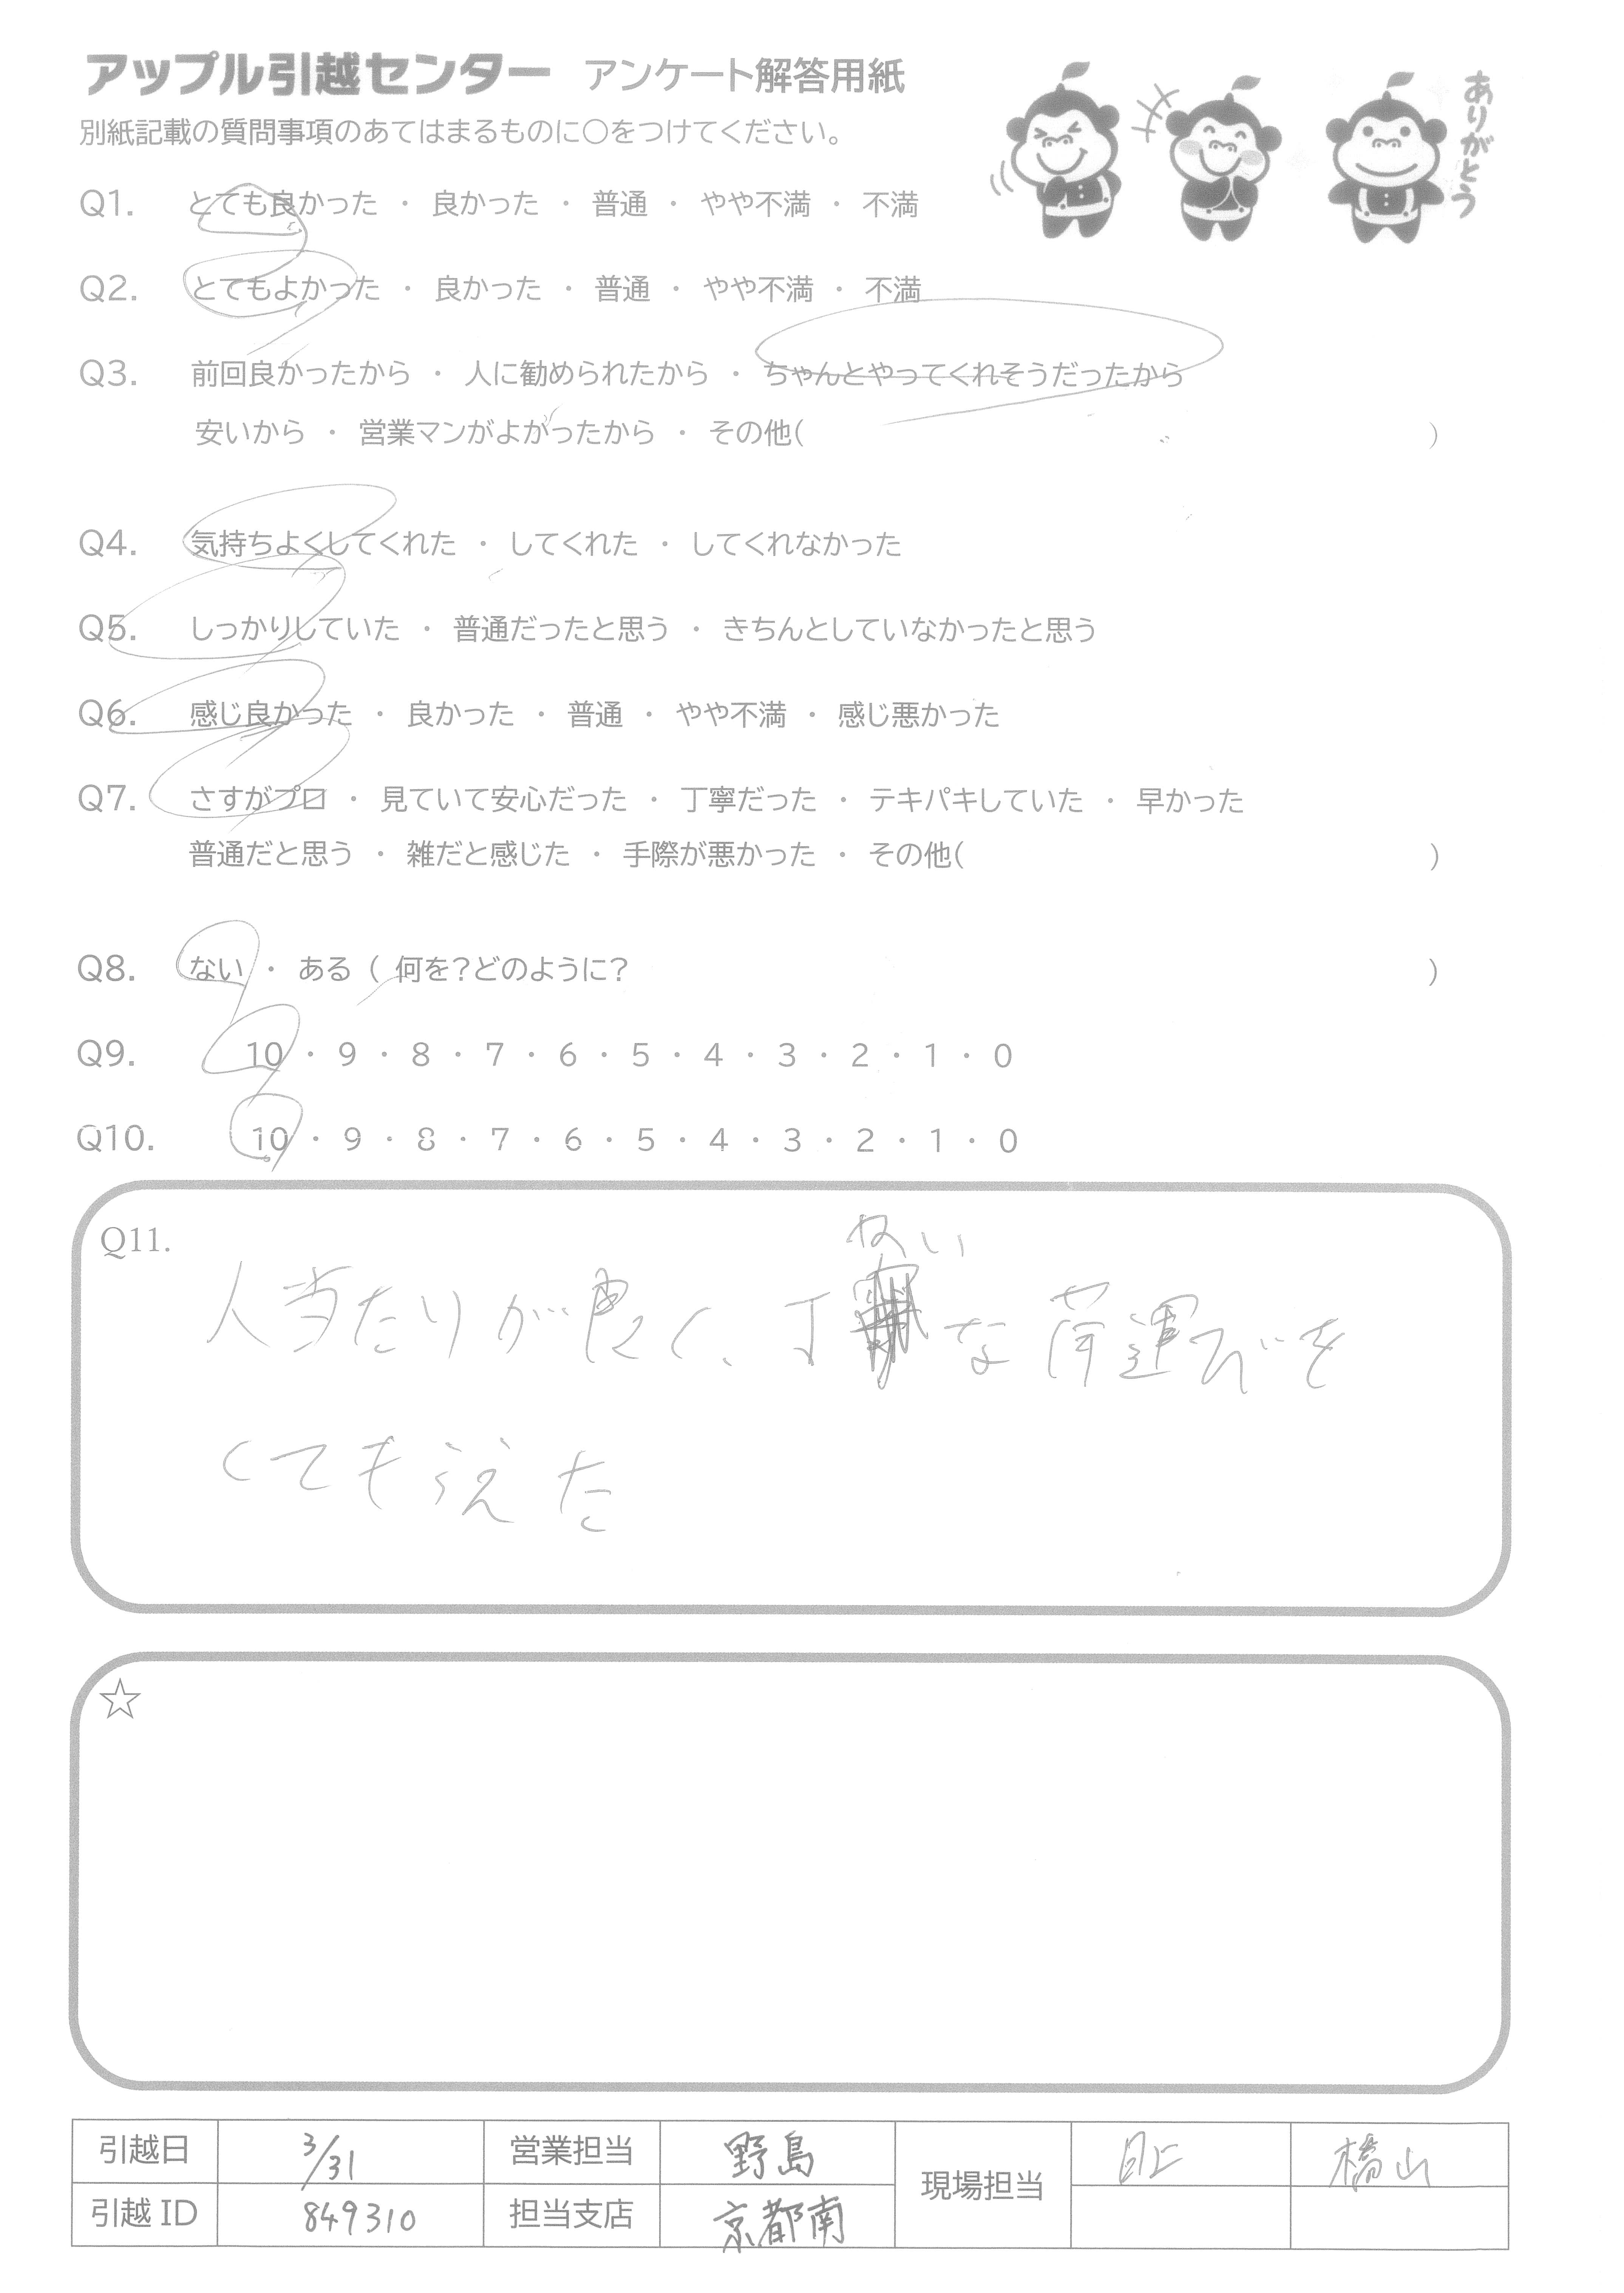 アップル引越センター アンケート解答用紙
別紙記載の質問事項のあてはまるものに○をつけてください。
ありがとう
Q1. とても良かった ・ 良かった ・ 普通 ・ やや不満 ・ 不満
Q2. とてもよかった ・ 良かった ・ 普通 ・ やや不満 ・ 不満
Q3. 前回良かったから ・ 人に勧められたから ・ ちゃんとやってくれそうだったから
安いから ・ 営業マンがよかったから ・ その他( )
Q4. 気持ちよくしてくれた ・ してくれた ・ してくれなかった
Q5. しっかりしていた ・ 普通だったと思う ・ きちんとしていなかったと思う
Q6. 感じ良かった ・ 良かった ・ 普通 ・ やや不満 ・ 感じ悪かった
Q7. さすがプロ ・ 見ていて安心だった ・ 丁寧だった ・ テキパキしていた ・ 早かった
普通だと思う ・ 雑だと感じた ・ 手際が悪かった ・ その他( )
Q8. ない ・ ある ( 何を?どのように? )
Q9. 10 ・ 9 ・ 8 ・ 7 ・ 6 ・ 5 ・ 4 ・ 3 ・ 2 ・ 1 ・ 0
Q10. 10 ・ 9 ・ 8 ・ 7 ・ 6 ・ 5 ・ 4 ・ 3 ・ 2 ・ 1 ・ 0
Q11.
人当たりが良く、丁ねいな荷運びを
してもらえた
☆
引越日 3/31 営業担当 野島 現場担当 橋山
引越 ID 849310 担当支店 京都南